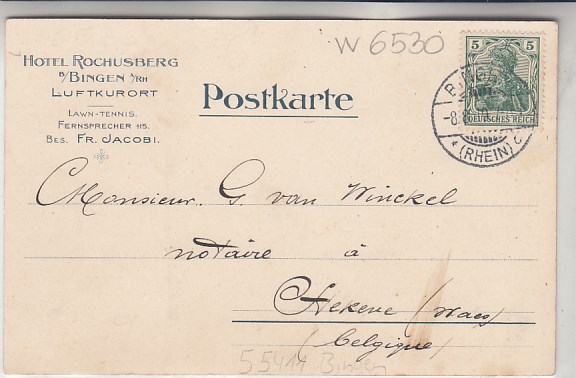 HOTEL ROCHUSBERG
B/BINGEN A/RH
LUFTKURORT
LAWN-TENNIS.
FERNSPRECHER 115.
BES. FR. JACOBI.
Postkarte
W 6530
5 5
DEUTSCHES REICH
(RHEIN)
Monsieur. G. van Winckel
notaire à
(Waes)
(belgique)
55411 Bingen